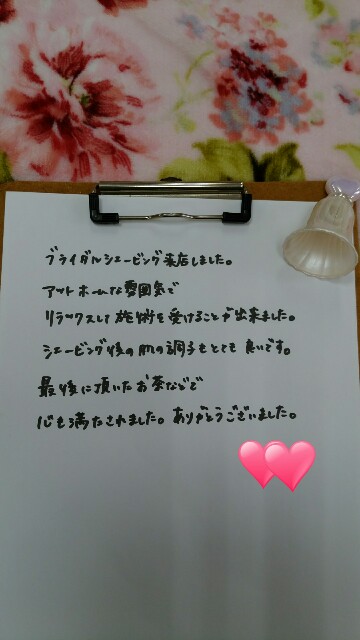 ブライダルシェービング来店しました。
アットホームな雰囲気で
リラックスして施術を受けることが出来ました。
シェービング後の肌の調子もとても良いです。
最後に頂いたお茶などで
心も満たされました。ありがとうございました。